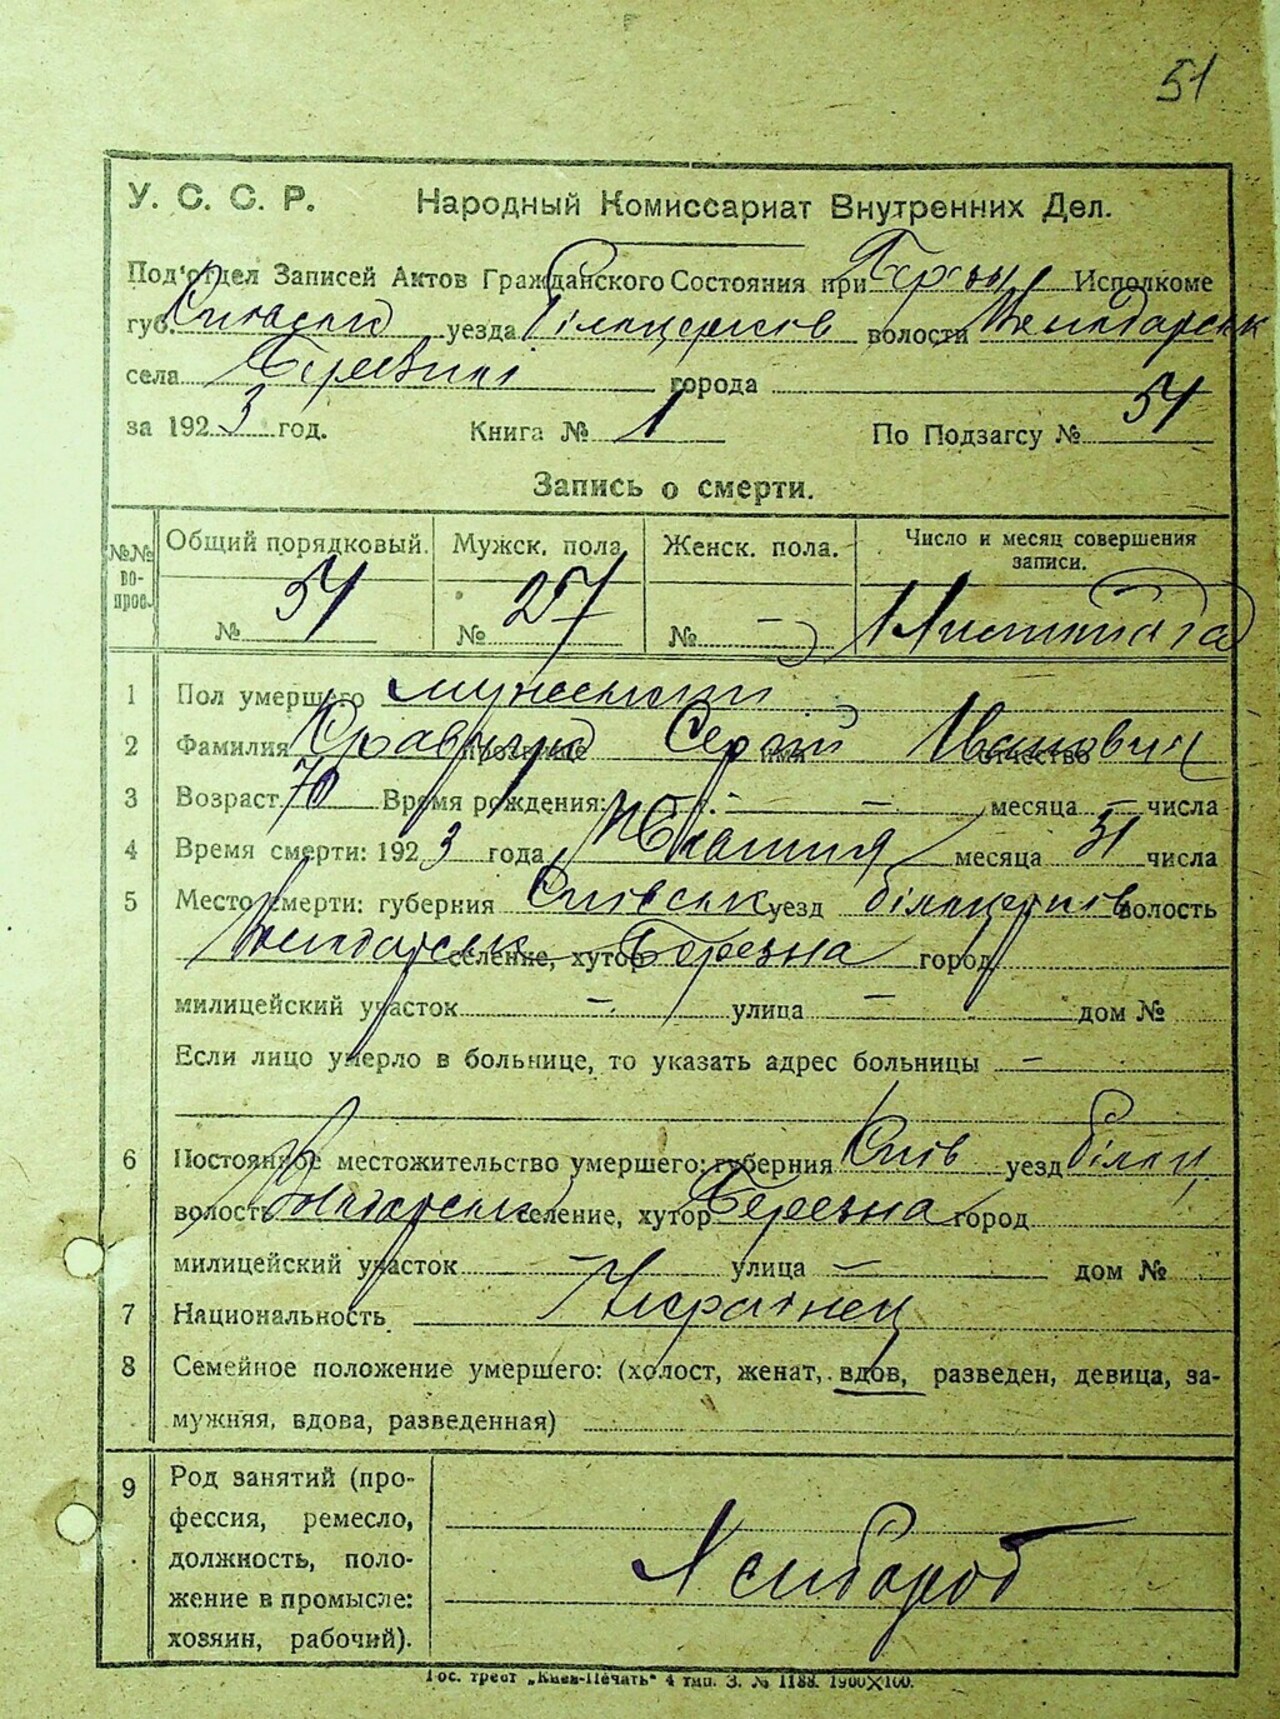 51
У. С. С. Р. Народный Комиссариат Внутренних Дел.
Под'отдел Записей Актов Гражданского Состояния при Исполкоме
губ. Київської уезда Білоцерків волости
села города
за 1923 год. Книга № 1 По Подзагсу № 51
Запись о смерти.
№№ вопрос. Общий порядковый. Мужск. пола Женск. пола. Число и месяц совершения записи.
№ 51 № 27 № — 1 Листопада
1 Пол умершего мужеский
2 Фамилия прозвище Сергій имя Иванович отчество
3 Возраст 70 Время рождения: — — месяца — числа
4 Время смерти: 1923 года месяца 31 числа
5 Место смерти: губерния Київськ уезд білоцерків волость
селение, хутор Березна город
милицейский участок — улица — дом №
Если лицо умерло в больнице, то указать адрес больницы —
6 Постоянное местожительство умершего: губерния Київ уезд біло ц
волость селение, хутор Березна город
милицейский участок — улица — дом №
7 Национальность Украінец
8 Семейное положение умершего: (холост, женат, вдов, разведен, девица, за-
мужняя, вдова, разведенная)
9 Род занятий (про-
фессия, ремесло,
должность, поло-
жение в промысле:
хозяин, рабочий).
Хлібороб
Гос. трест „Киев-Печать“ 4 тип. З. № 1188. 1900×100.